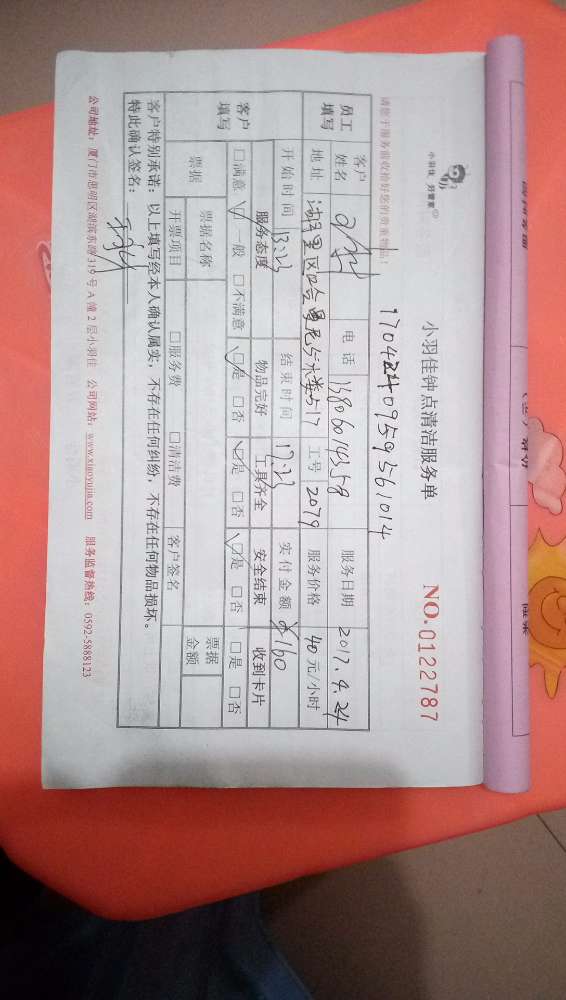 小羽佳 另管家
小羽佳钟点清洁服务单
NO.0122787
请您于服务前收拾好您的贵重物品！
17042409595561014
员工填写 客户姓名 电话 13806014358 服务日期 2017.4.24
地址 工号 2079 服务价格 40元/小时
客户填写 开始时间 13:23 结束时间 17:23 实付金额 160
服务态度 物品完好 工具齐全 安全结束 收到卡片
□满意 □一般 □不满意 □是 □否 □是 □否 □是 □否 □是 □否
票据 票据名称 票据金额
开票项目 □服务费 □清洁费 客户签名
客户特别承诺：以上填写经本人确认属实，不存在任何纠纷，不存在任何物品损坏。
特此确认签名：
公司地址：厦门市思明区湖滨东路319号A幢2层小羽佳 公司网站：www.xiaoyujia.com 服务监督热线：0592-5888123